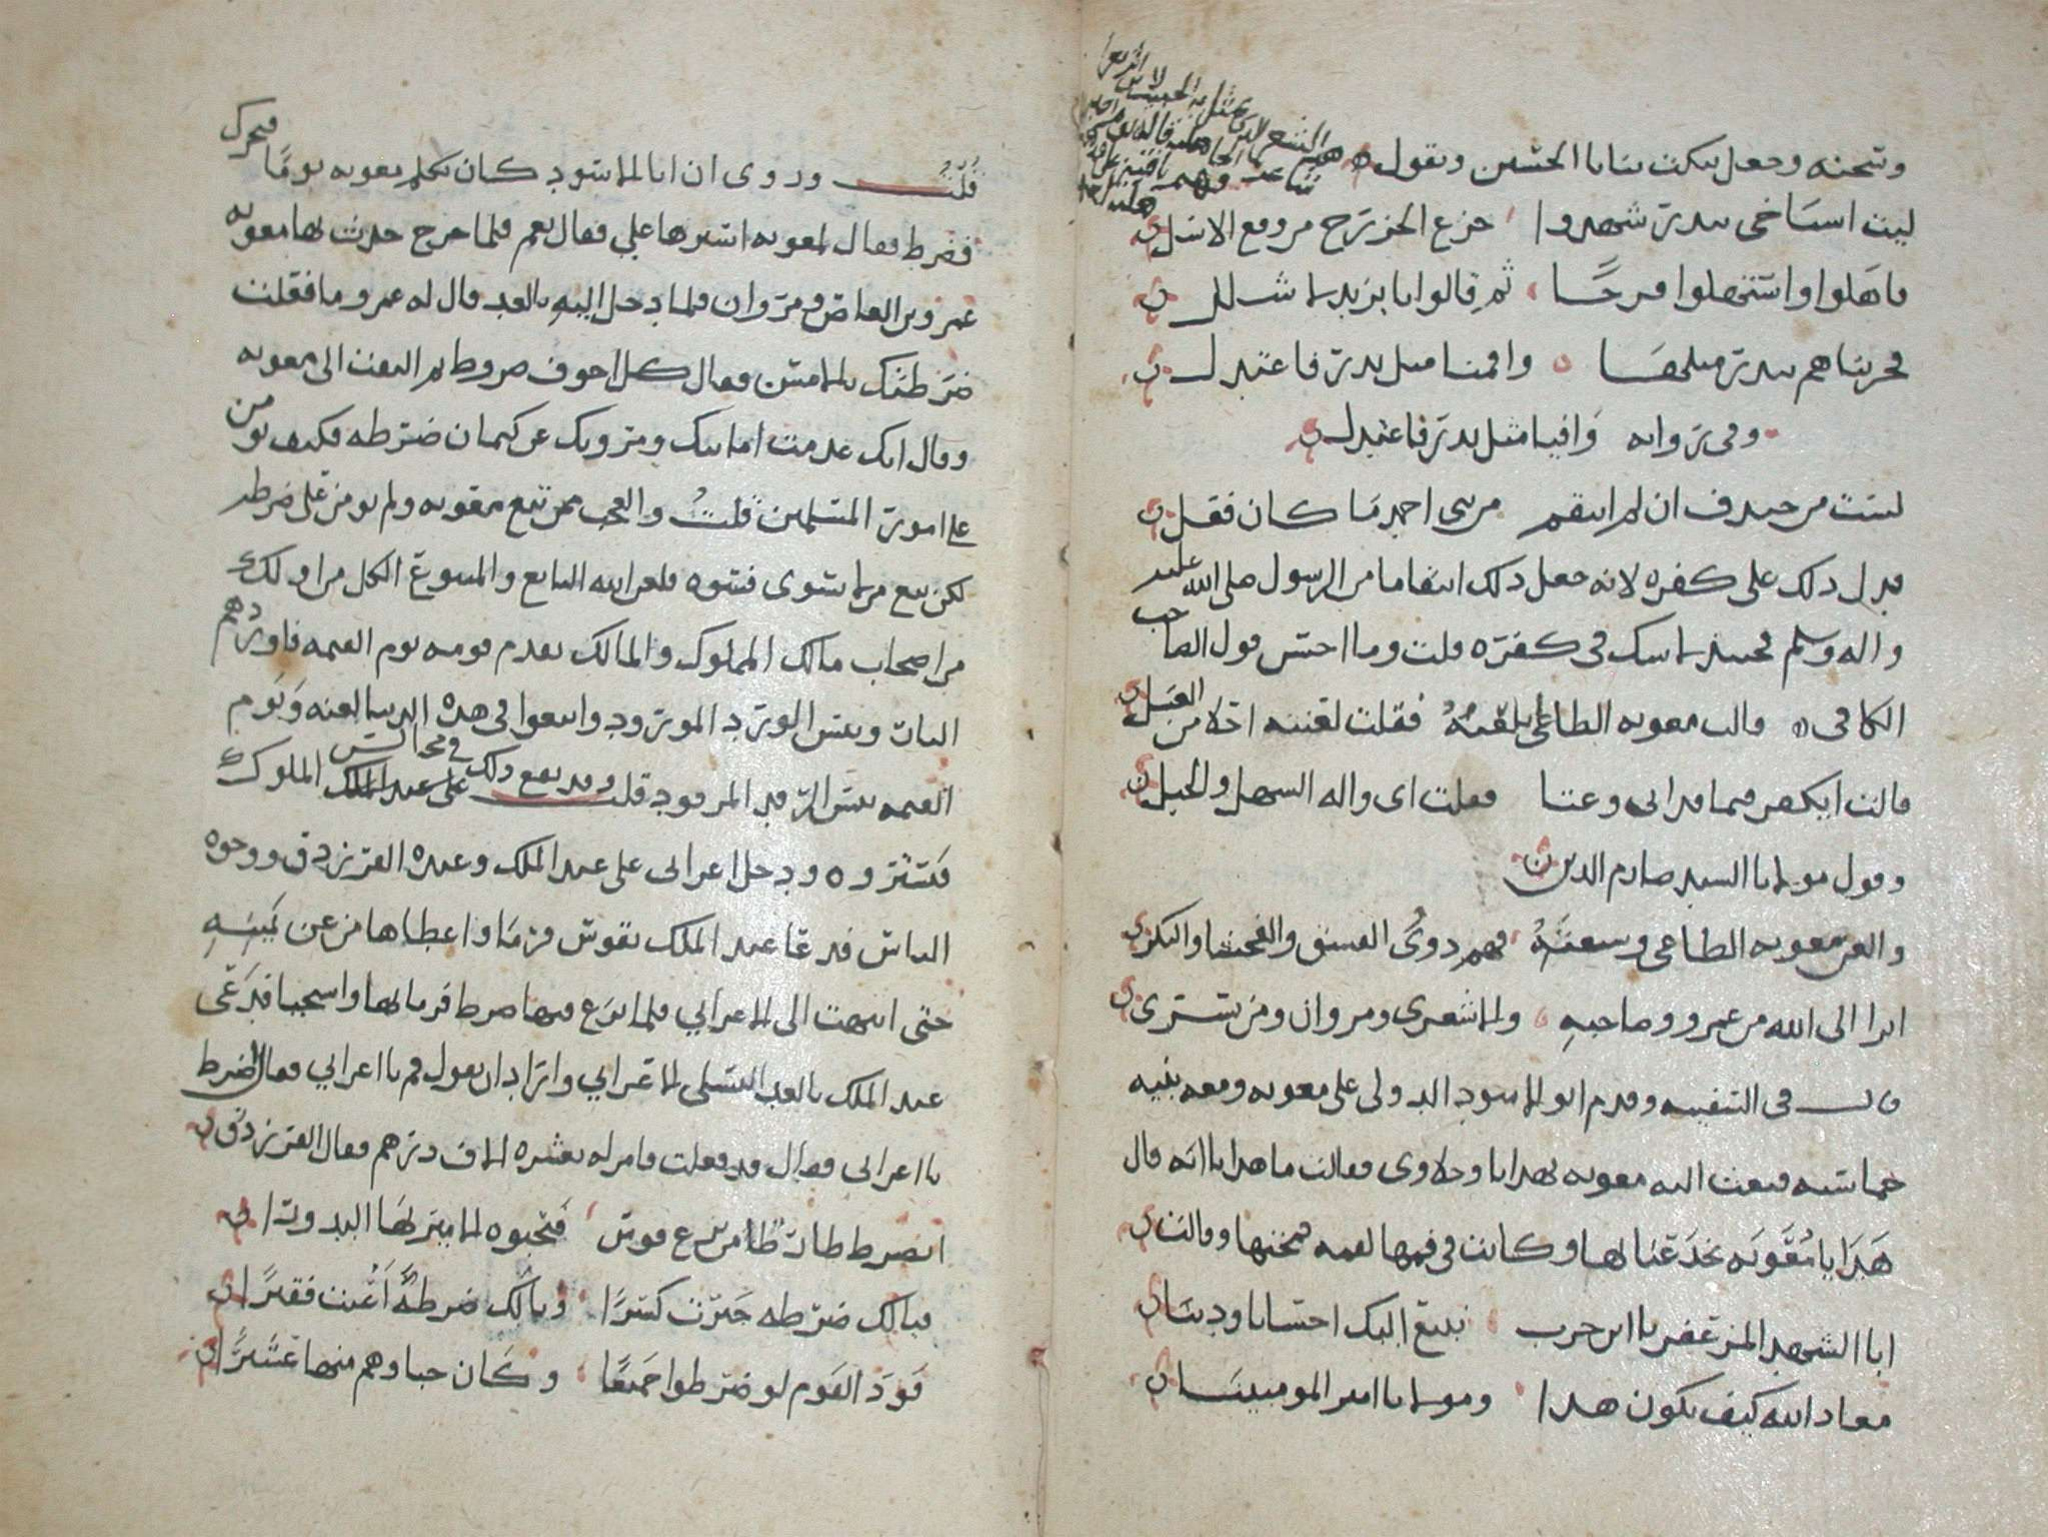 وشحنه وجعل ينكت ثنايا الحسين ويقول
ليت اشياخي ببدر شهدوا جزع الخزرج من وقع الاسل
فاهلوا واستهلوا فرحا ثم قالوا يا يزيد لا شلل
فجزيناهم ببدر مثلها واقمنا ميل بدر فاعتدل
وفي رواية وافيا مثل بدر فاعتدل
لست من خندف ان لم انتقم من بني احمد ما كان فعل
فدل ذلك على كفره لانه جعل ذلك انتقاما من الرسول صلى الله عليه
واله وسلم فحينئذ لا شك في كفره قلت وما احسن قول الصاحب
الكافي
قالت معويه الطاغي بلعنه فقلت لعنته احلا من العسل
قالت ايكفر فيما قد اتى وعتا فقلت اي واله السهل والجبل
وقول مولانا السيد صارم الدين
والعن معويه الطاغي وشيعته فهم ذوي الفسق والفحشا والنكر
ابرا الى الله من عمرو وصاحبه والاشعري ومروان ومن بسر
قال في السفينه وقدم ابو الاسود الدولي على معويه ومعه بنيه
خماسيه فبعث اليه معويه بهدايا وحلاوى فقالت ما هذا يا ابه قال
هذا يا معويه يخدعنا لها وكانت في فمها لقمه فمجتها وقالت
ابا الشهد المزعفر يا ابن حرب نبيع اليك احسابا ودينا
معاذ الله كيف يكون هذا ومولانا امير المومنينا
قلت وروى ان ابا الاسود كان يكلم معويه يوما فتحرك
فضرط فقال لمعويه استرها علي فقال نعم فلما خرج حدث بها معويه
عمرو بن العاص ومروان فلما دخل اليه بالغد قال له عمرو ما فعلت
ضرطتك بالامس فقال كل اجوف ضروط ثم التفت الى معويه
وقال انك عدمت امانتك ومروتك عن كتمان ضرطه فكيف تومن
على امور المسلمين قلت والعجب ممن تبع معويه ولم يومن على ضرطه
لكن بيع من لا يسوى فسوه فلعن الله البايع والمبيوع الكل من اولئك
من اصحاب مالك المملوك والمالك يقدم قومه يوم القيمه فاوردهم
النار وبئس الورد المورود واتبعوا في هذه الدنيا لعنه ويوم
القيمه بئس الرفد المرفود قلت وقد يقع ذلك في مجالس الملوك
فتستروه ودخل اعرابي على عبد الملك وعنده الفرزدق ووجوه
الناس فدعا عبد الملك بقوس فرما واعطاها من عن يمينه
حتى انتهت الى الاعرابي فلما نزع فيها ضرط فرما بها واستحيا فدعى
عبد الملك بالغد لاعرابي واراد ان يقول قم يا اعرابي فقال اضرط
يا اعرابي فقال قد فعلت فامر له بعشره الاف درهم فقال الفرزدق
ايضرط ضارط من نزع قوس فتحبوه الامير لها البدورا
فيالك ضرطه جرت كثيرا ويالك ضرطه اغنت فقيرا
فود القوم لو ضرطوا جميعا وكان حباوهم منها عشيرا